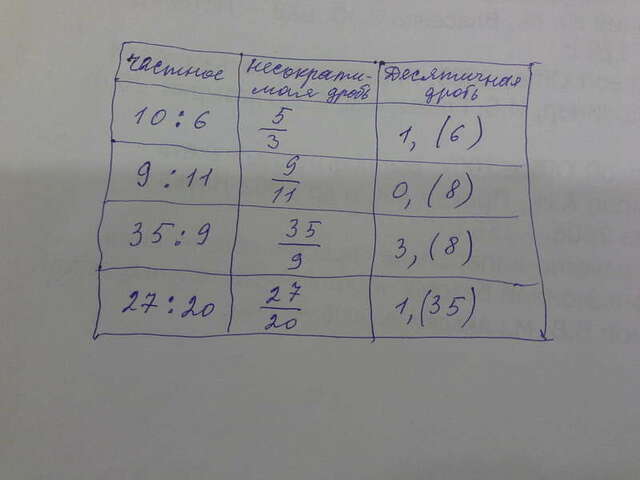 частное несократи-
мая дробь Десятичная
дробь
10:6 5/3 1,(6)
9:11 9/11 0,(8)
35:9 35/9 3,(8)
27:20 27/20 1,(35)